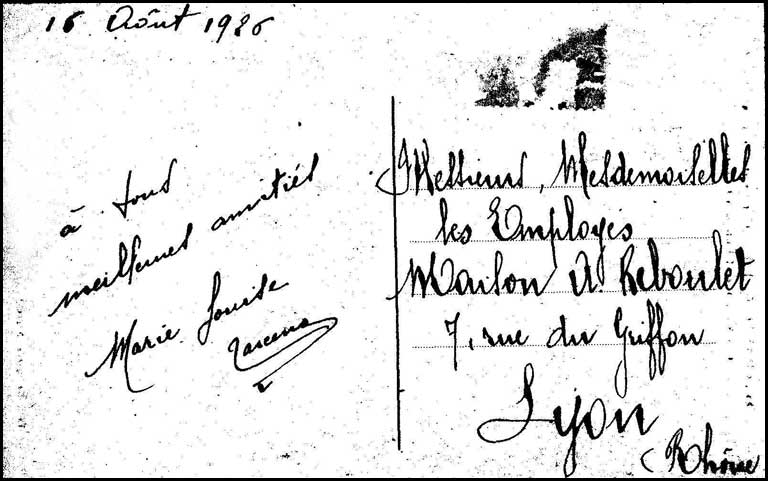 16 Août 1926
à tous
meilleures amitiés
Marie Louise
Messieurs, Mesdemoiselles
les Employes
Maison A Reboulet
7, rue du Griffon
Lyon
(Rhône